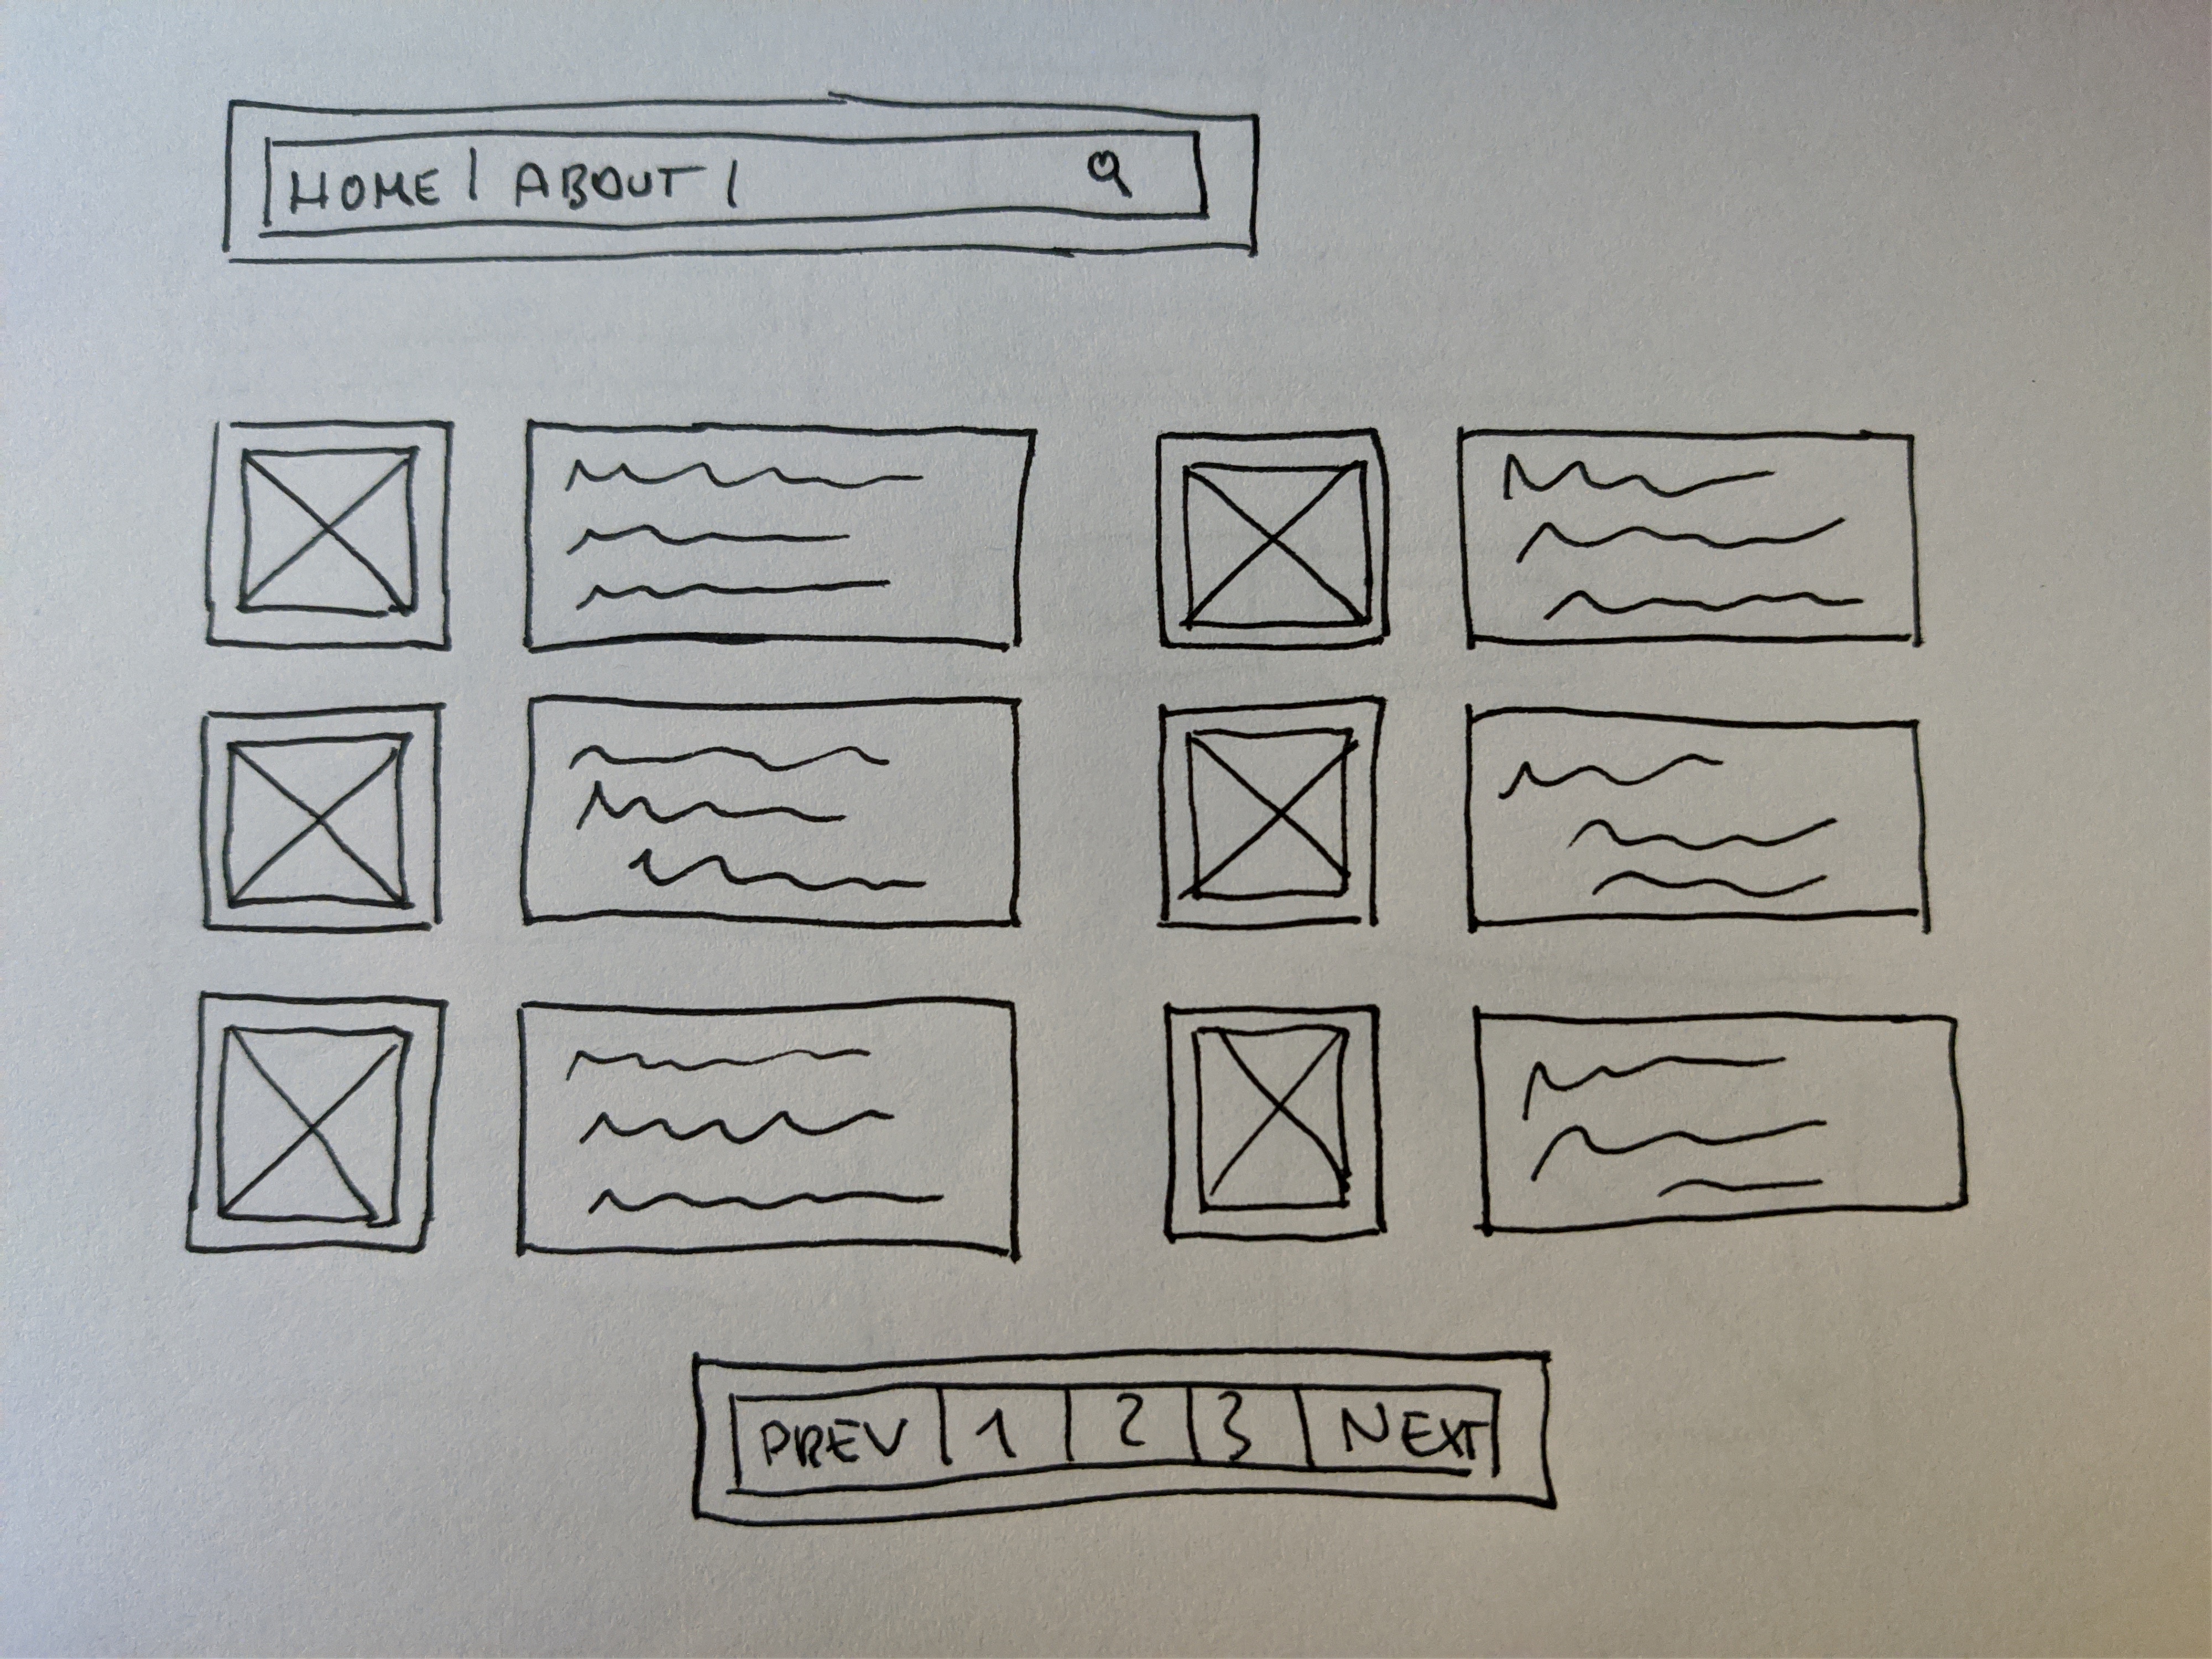 HOME | ABOUT |
PREV | 1 | 2 | 3 | NEXT